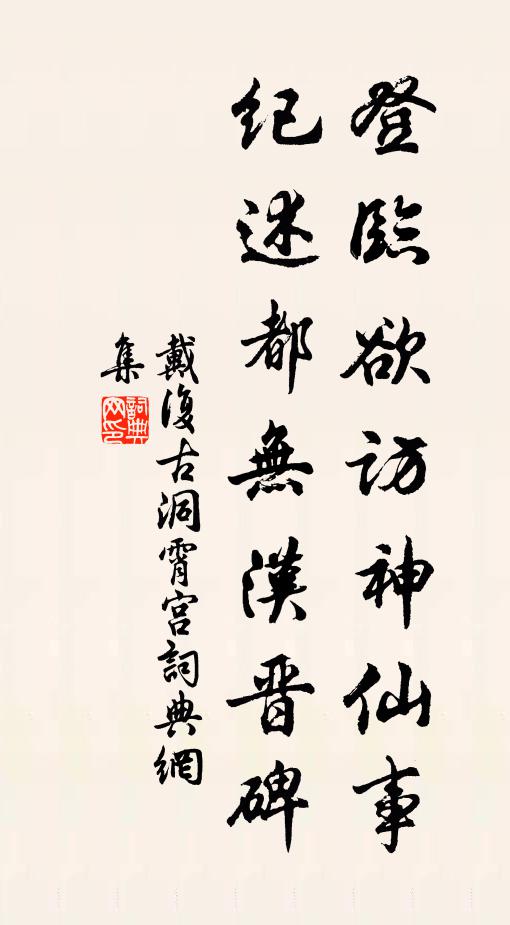 登臨欲訪神仙事
紀述都無漢晉碑
戴復古洞霄宮詞典網
集
詞典
网印